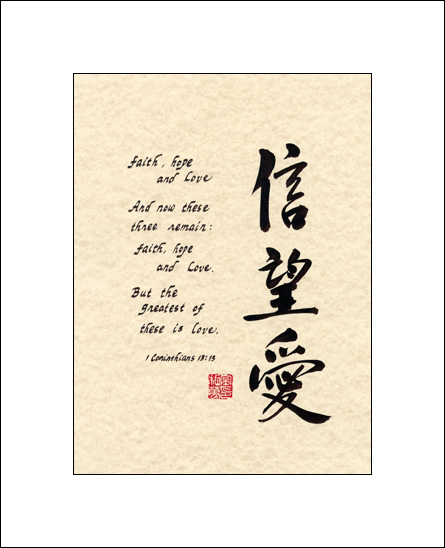 Faith, hope
and Love
And now these
three remain:
Faith, hope
and Love.
But the
greatest of
these is love.
1 Corinthians 13:13
信
望
愛